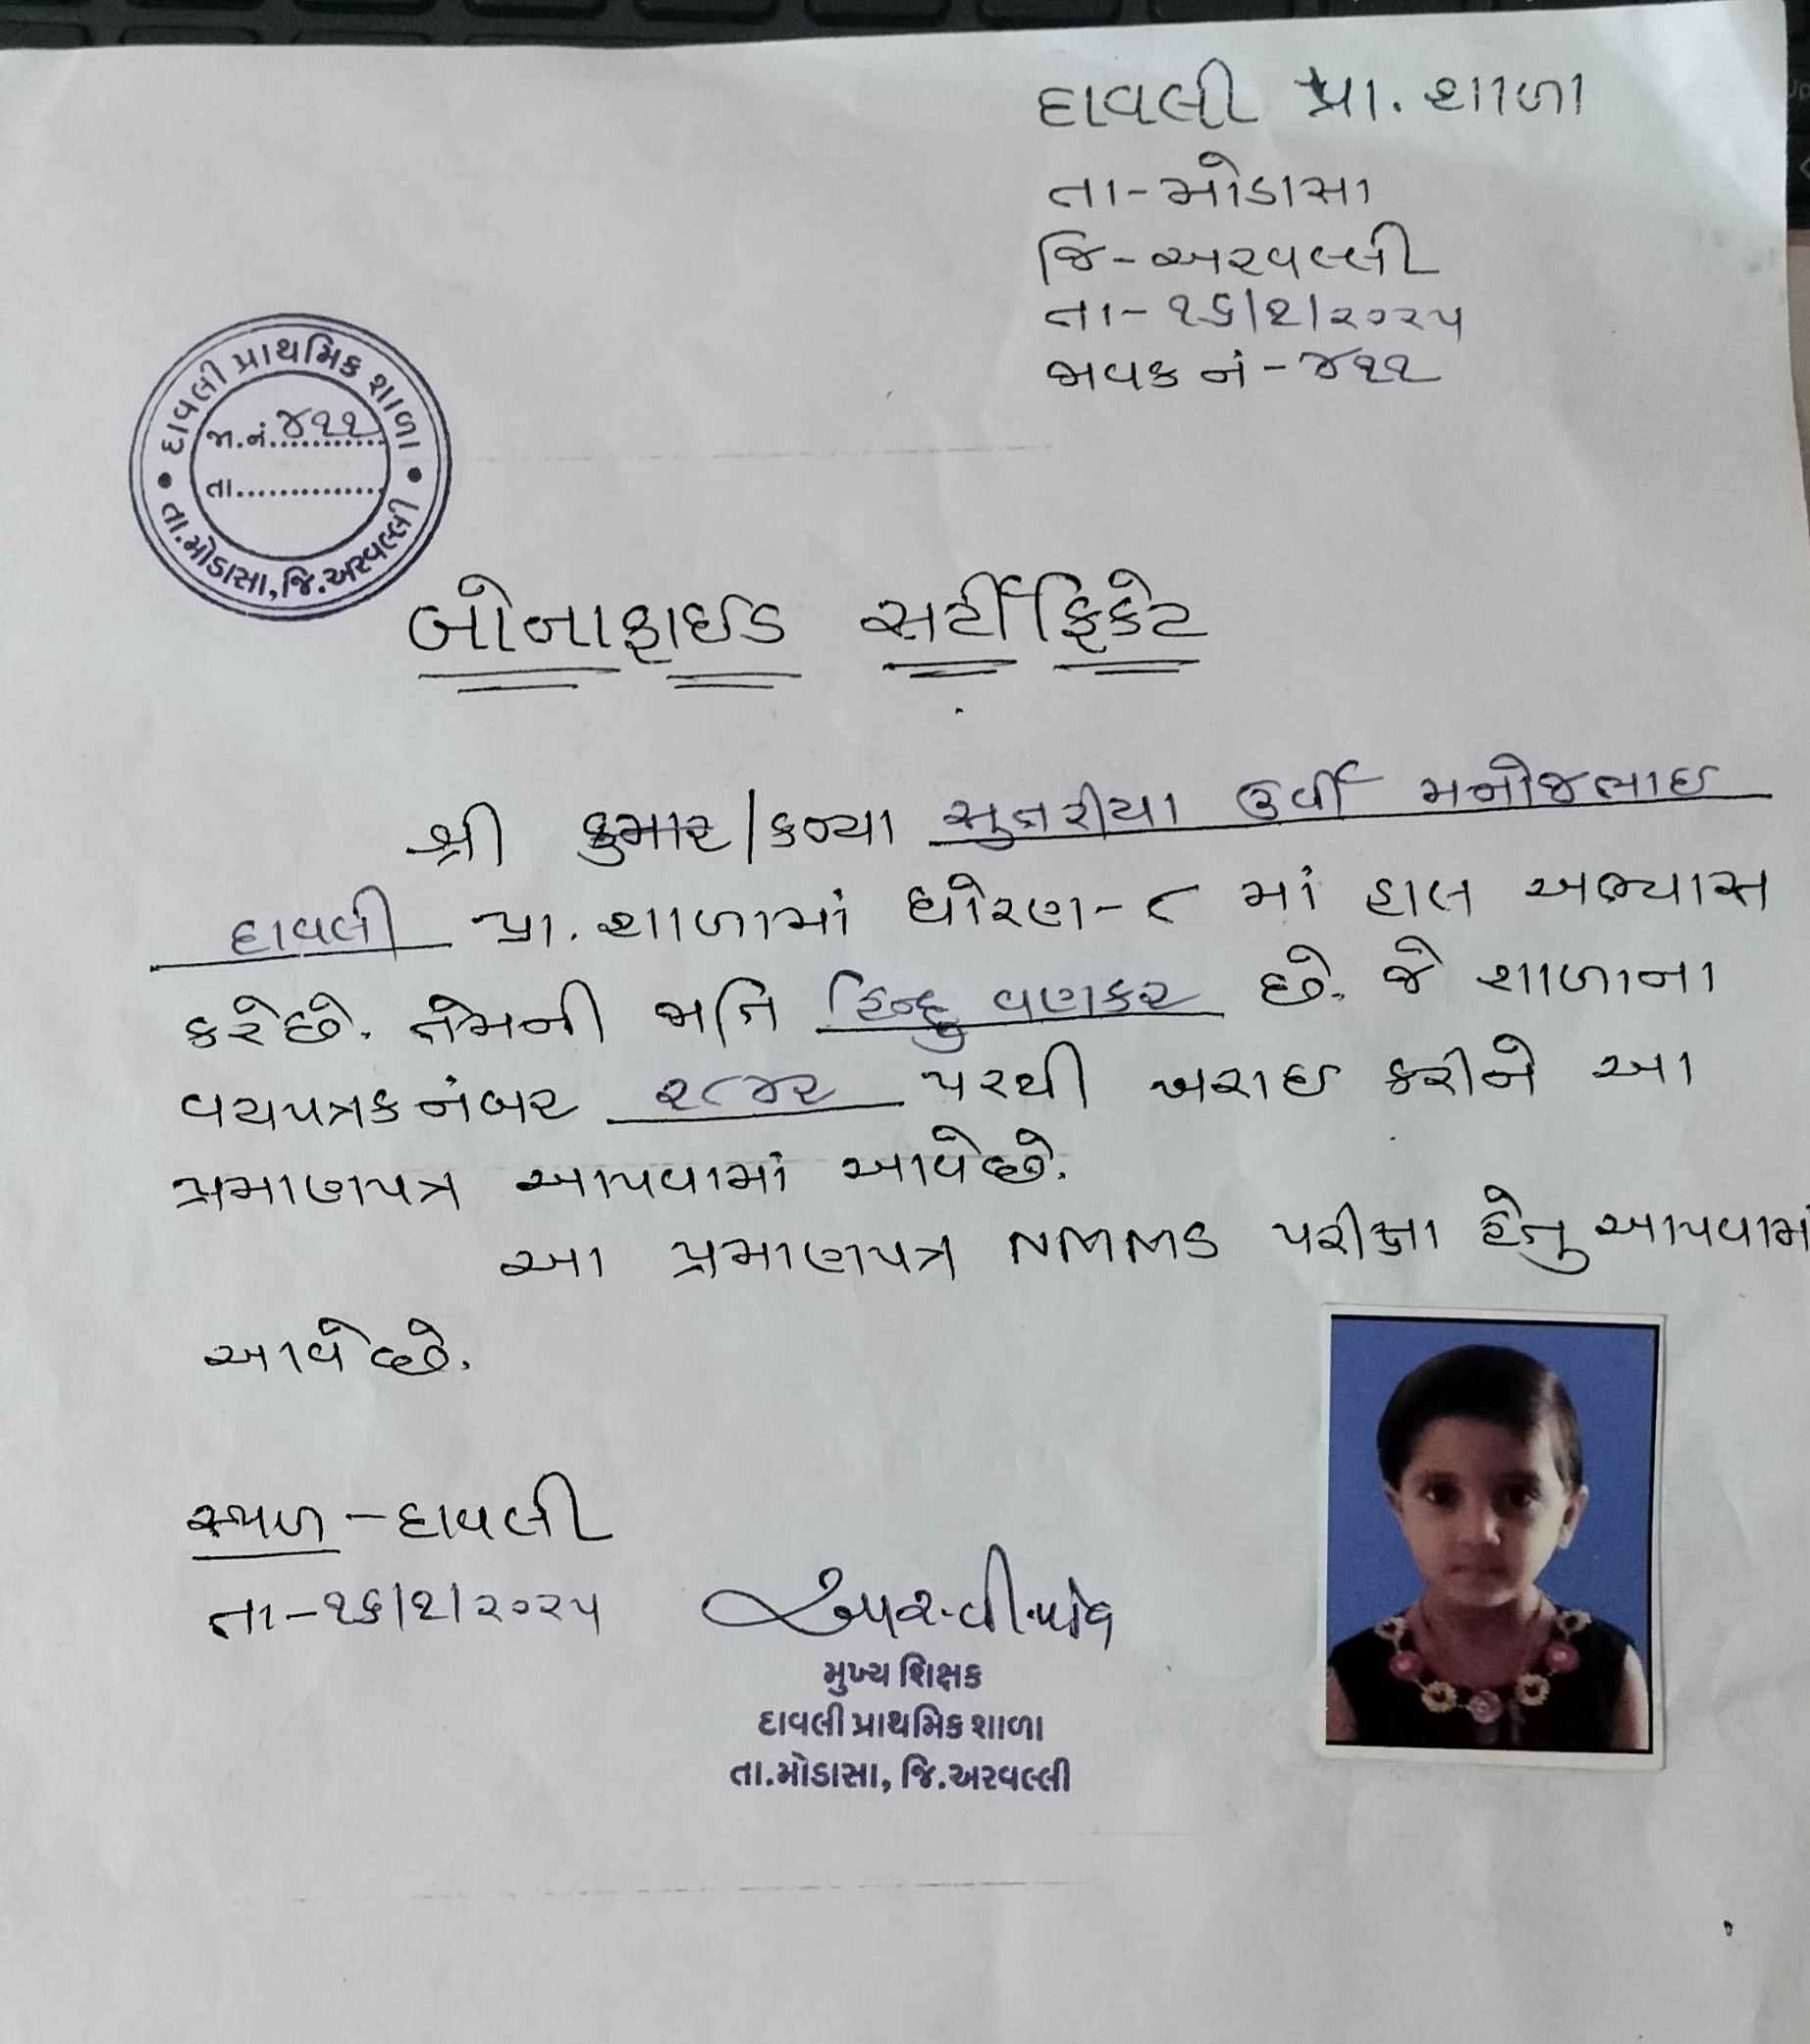 દાવલી પ્રા. શાળા
તા-મોડાસા
જિ-અરવલ્લી
તા-૧૬/૧/૨૦૨૫
જાવક નં-૪૧૧
દાવલી પ્રાથમિક શાળા
જા.નં. ૪૧૧
તા.
તા.મોડાસા, જિ.અરવલ્લી
બોનાફાઈડ સર્ટીફિકેટ
શ્રી કુમાર/કન્યા સુતરીયા ઉર્વી મનોજભાઇ
દાવલી પ્રા. શાળામાં ધોરણ-૮ માં હાલ અભ્યાસ
કરેછે. તેમની જાતિ હિન્દુ વણકર છે. જે શાળાના
વયપત્રક નંબર ૨૮૪૨ પરથી ખરાઇ કરીને આ
પ્રમાણપત્ર આપવામાં આવેછે.
આ પ્રમાણપત્ર NMMS પરીક્ષા હેતુ આપવામાં
આવેછે.
સ્થળ - દાવલી
તા-૧૬/૧/૨૦૨૫
મુખ્ય શિક્ષક
દાવલી પ્રાથમિક શાળા
તા.મોડાસા, જિ.અરવલ્લી